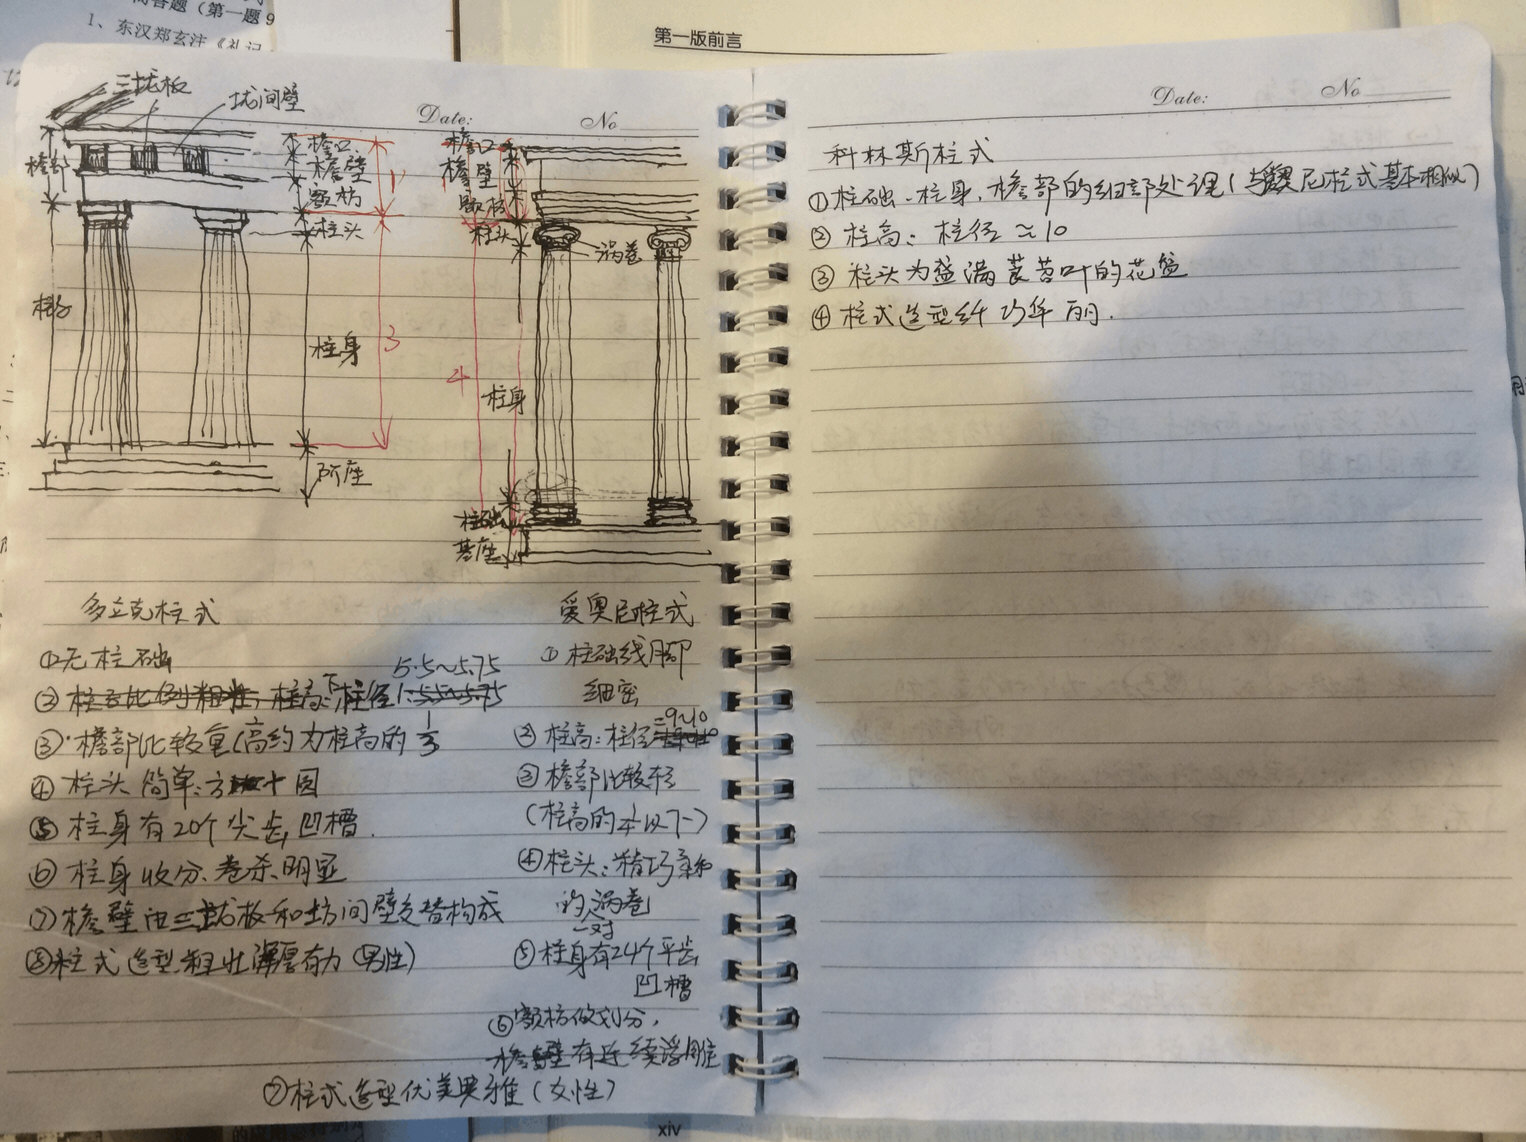 简答题（第一题9
1、东汉郑玄注《礼记
第一版前言
三垅板
垅间壁
Date:
No
檐部
檐口
檐壁
额枋
柱头
1
柱身
3
阶座
檐口
檐壁
额枋
柱头
涡卷
4
柱身
柱础
基座
多立克柱式
①无柱础
5.5~5.75
② 柱高:下柱径
③檐部比较重(高约为柱高的1/3
④ 柱头简单:方+圆
⑤ 柱身有20个尖齿凹槽.
⑥ 柱身收分、卷杀明显
⑦檐壁由三垅板和垅间壁交替构成
⑧柱式造型粗壮浑厚有力(男性)
爱奥尼柱式
①柱础线脚
细密
②柱高:柱径=9~10
③檐部比较轻
(柱高的1/4以下)
④柱头:精巧柔和
的涡卷
一对
⑤柱身有24个平齿
凹槽
⑥额枋做划分,
檐壁有连续浮雕
⑦柱式造型优美典雅(女性)
Date:
No
科林斯柱式
①柱础、柱身、檐部的细部处理(与奥尼柱式基本相似)
② 柱高:柱径≈10
③ 柱头为盛满茛苕叶的花篮
④ 柱式造型纤巧华丽.
xiv